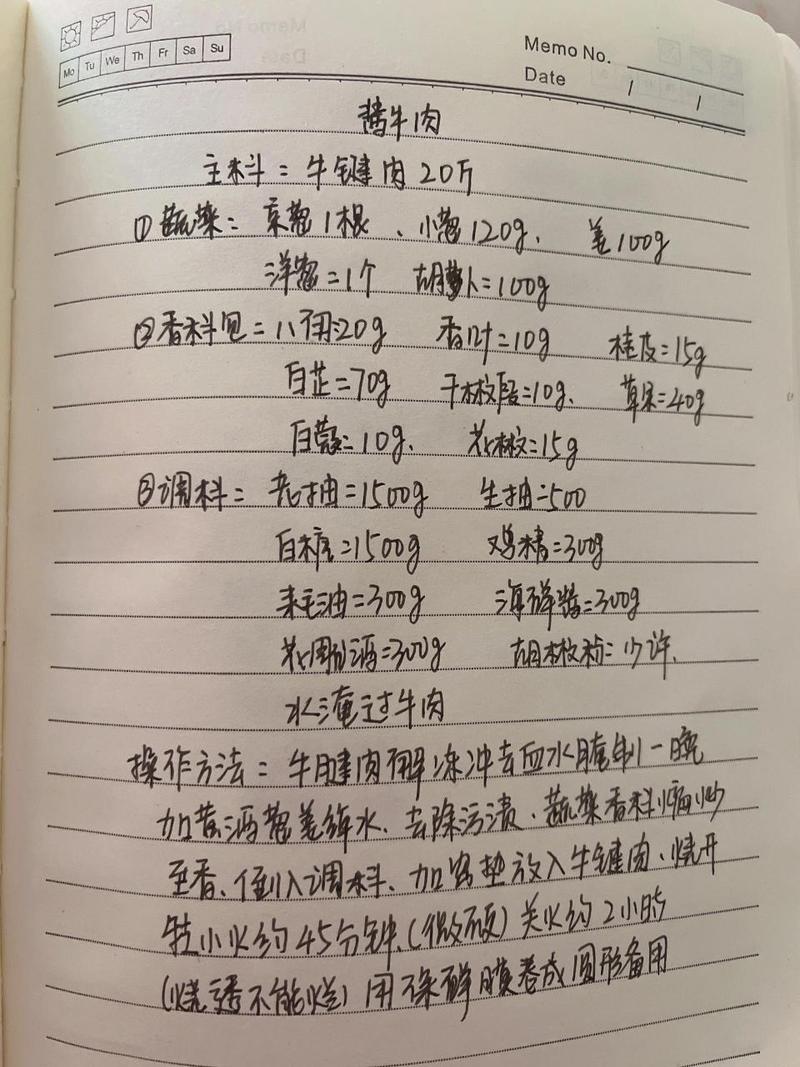 Mo Tu We Th Fr Sa Su
Memo No.
Date / /
酱牛肉
主料：牛键肉20斤
①蔬菜：京葱1根、小葱120g、姜100g
洋葱=1个 胡萝卜=100g
②香料包=八角=20g 香叶=10g 桂皮=15g
白芷=70g 干椒段=10g、草果=40g
白蔻=10g、花椒=15g
③调料=老抽=1500g 生抽=500
白糖=1500g 鸡精=300g
耗油=300g 海鲜酱=300g
花周酒=300g 胡椒粉=少许.
水淹过牛肉
操作方法：牛腱肉解冻冲去血水腌制一晚
加黄酒葱姜焯水、去除污渍、蔬菜香料煸炒
至香、倒入调料、加锅垫放入牛键肉、烧开
转小火约45分钟.(微硬)关火约2小时
(烧透不能烂)用保鲜膜卷成圆形备用